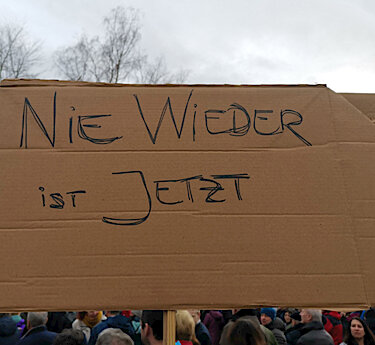 Nie Wieder
ist Jetzt